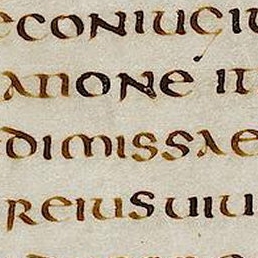 econiugiu
anone it
dimissae
reiusuiu